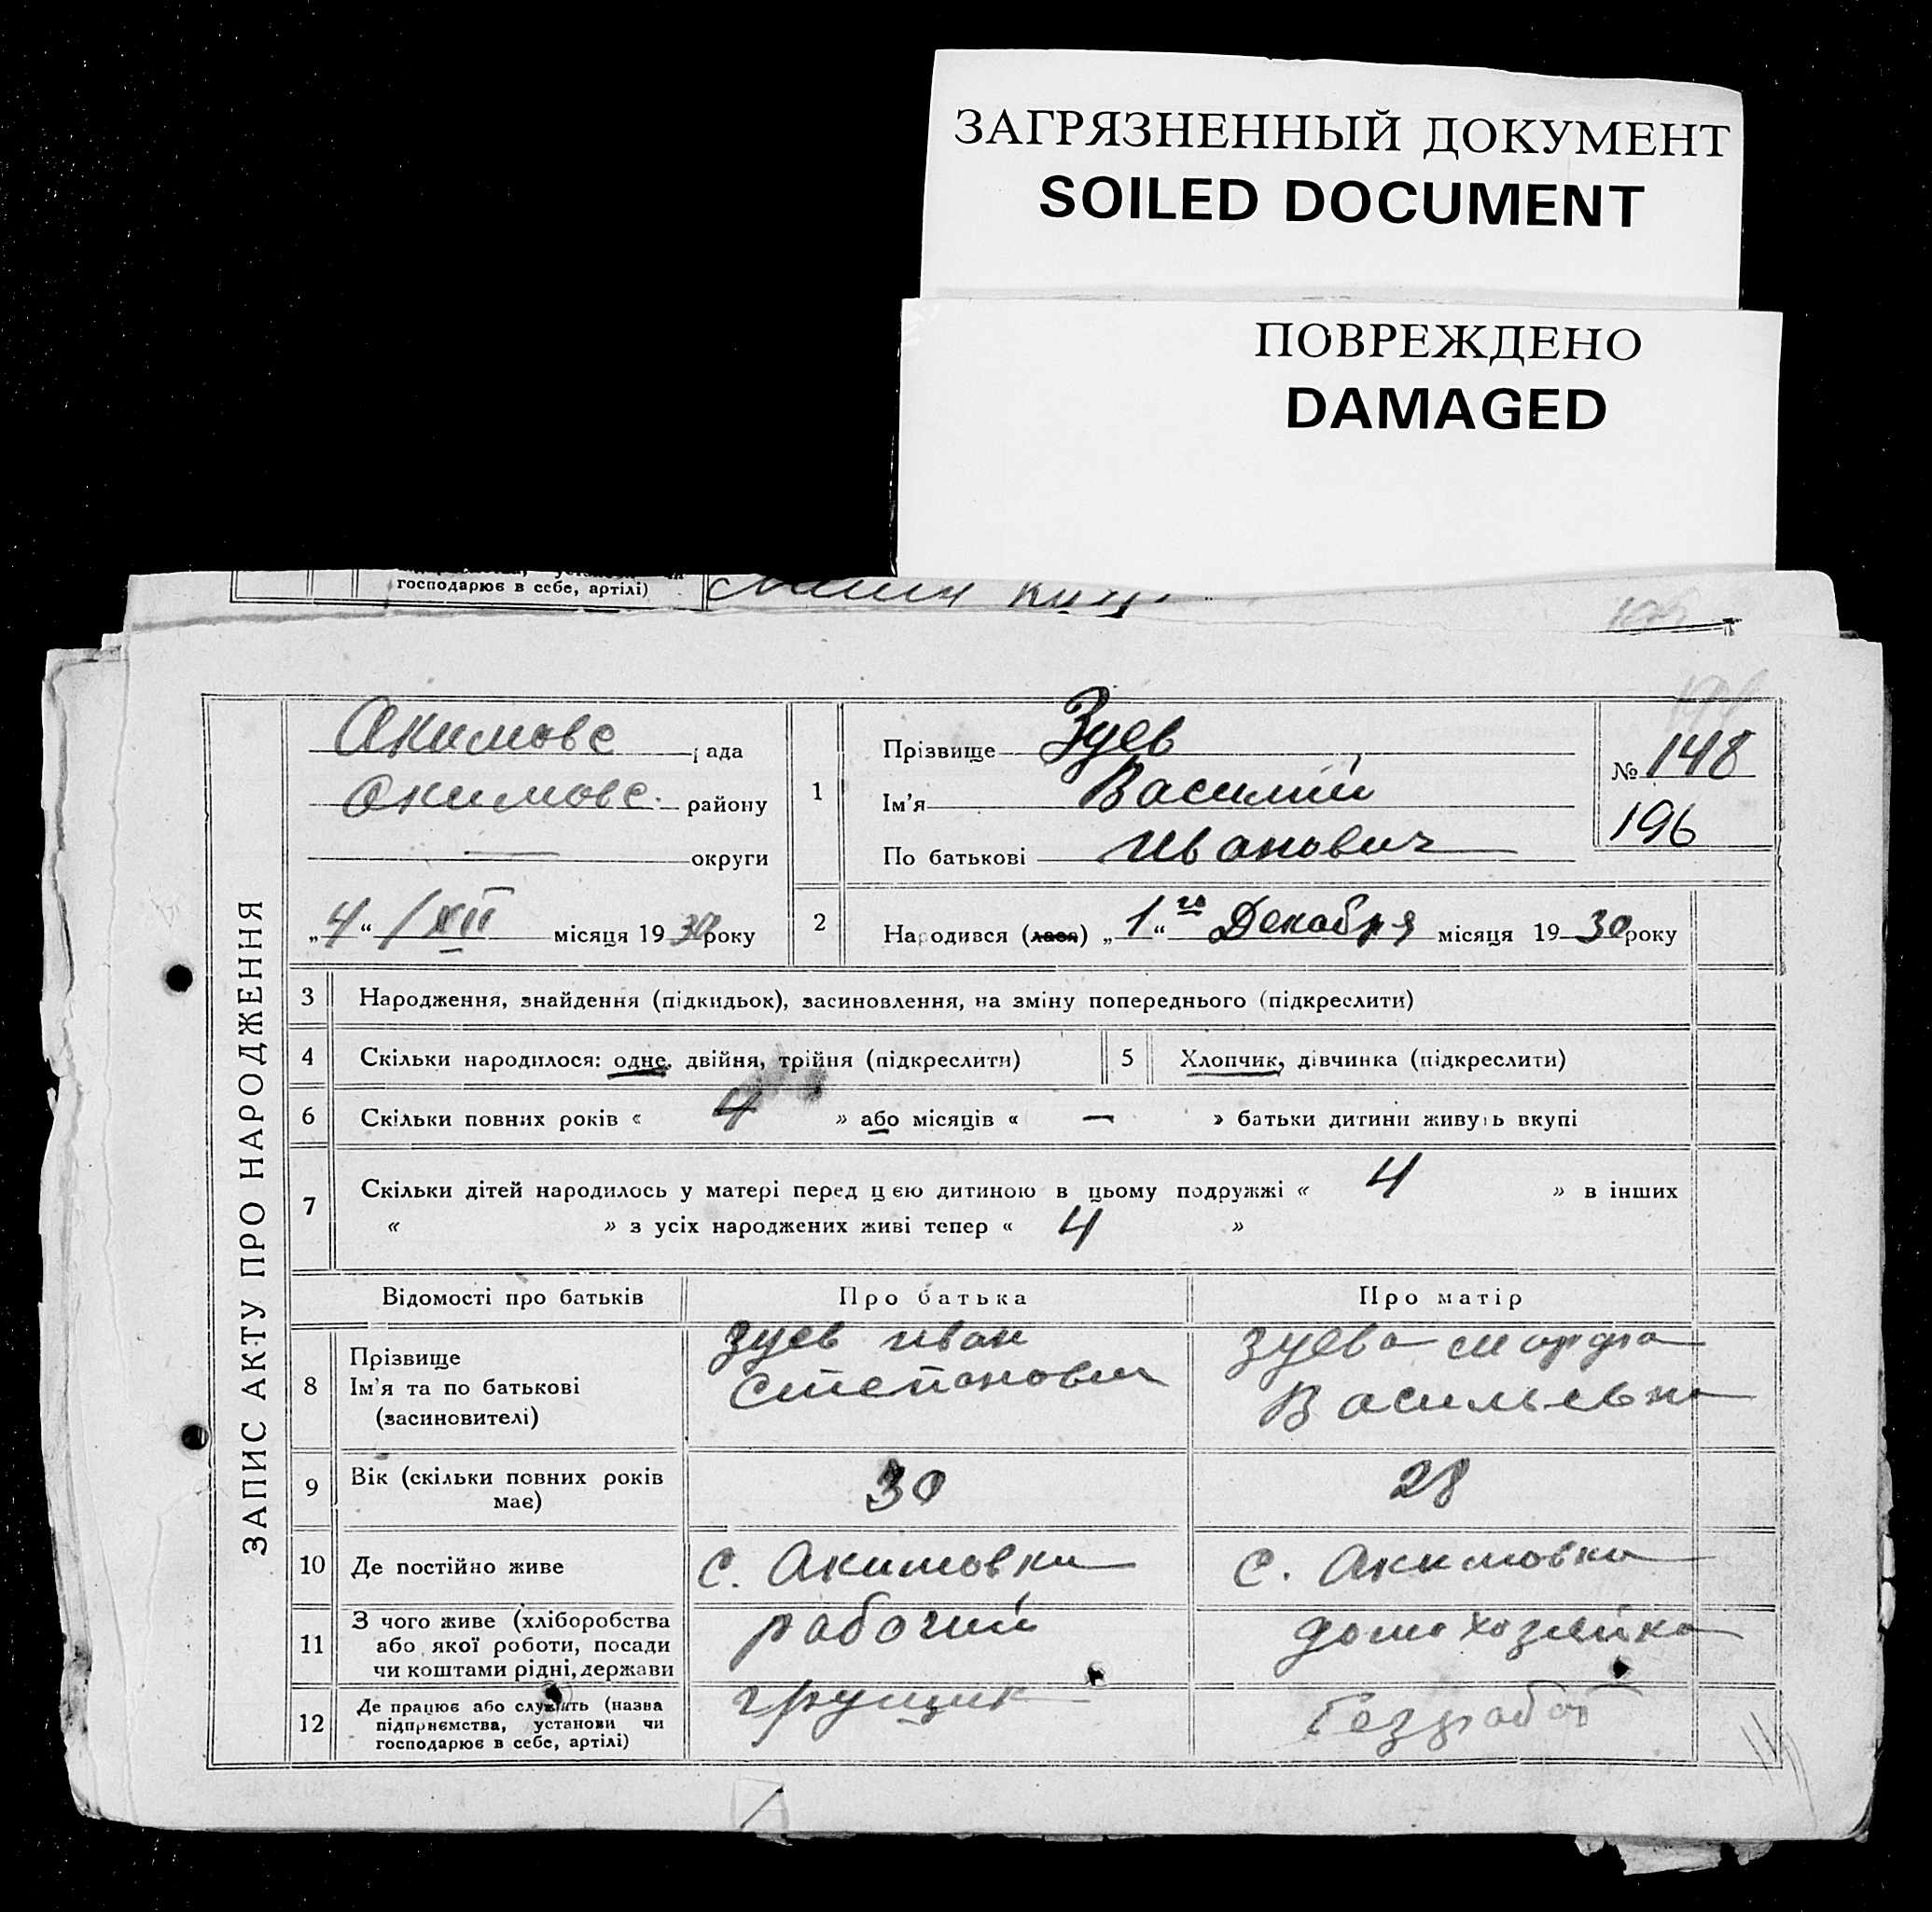 ЗАГРЯЗНЕННЫЙ ДОКУМЕНТ
SOILED DOCUMENT
ПОВРЕЖДЕНО
DAMAGED
господарює в себе, артілі)
ЗАПИС АКТУ ПРО НАРОДЖЕННЯ
Акимовс рада
Окимовс. району
— округи
„4“ /XII місяця 1930 року
1
Прізвище Зуев
Ім'я Василий
По батькові Иванович
№ 148
196
2
Народився (лася) „1го“ Декабря місяця 1930 року
3 Народження, знайдення (підкидьок), засиновлення, на зміну попереднього (підкреслити)
4 Скільки народилося: одне, двійня, трійня (підкреслити)
5 Хлопчик, дівчинка (підкреслити)
6 Скільки повних років « 4 » або місяців « — » батьки дитини живуть вкупі
7 Скільки дітей народилось у матері перед цією дитиною в цьому подружжі « 4 » в інших
« » з усіх народжених живі тепер « 4 »
Відомості про батьків Про батька Про матір
8 Прізвище
Ім'я та по батькові
(засиновителі)
Зуев Иван
Степанович
Зуева Марфа
Васильевна
9 Вік (скільки повних років
має)
30
28
10 Де постійно живе
с. Акимовка
с. Акимовка
11 З чого живе (хліборобства
або якої роботи, посади
чи коштами рідні, держави
рабочий
домохозяйка
12 Де працює або служить (назва
підприємства, установи чи
господарює в себе, артілі)
грущик
безработ